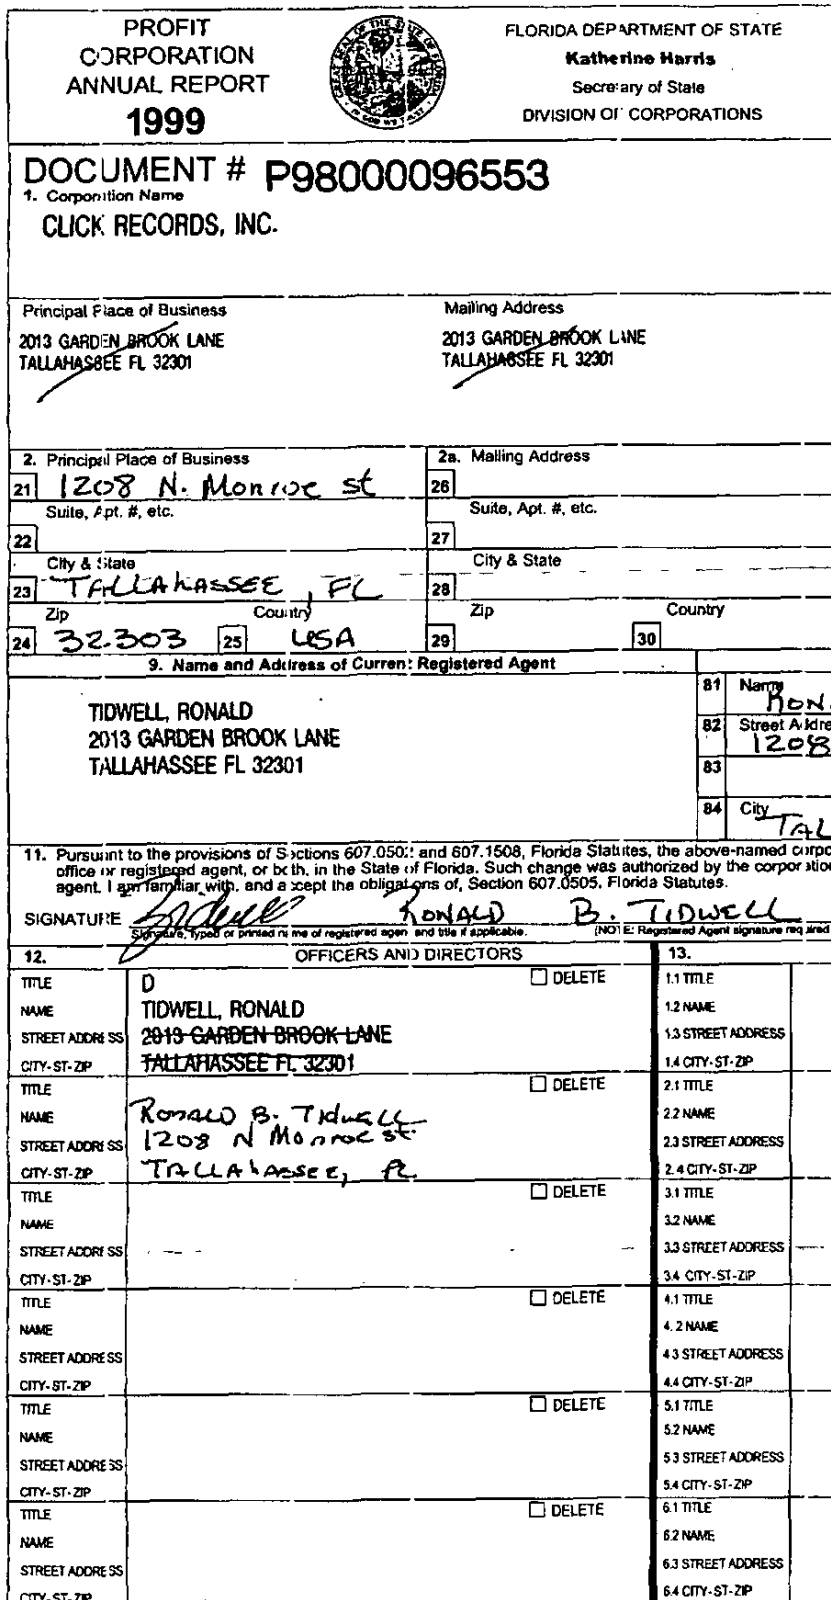 PROFIT
CORPORATION
ANNUAL REPORT
1999
FLORIDA DEPARTMENT OF STATE
Katherine Harris
Secretary of State
DIVISION OF CORPORATIONS
DOCUMENT # P98000096553
1. Corporation Name
CLICK RECORDS, INC.
Principal Place of Business
2013 GARDEN BROOK LANE
TALLAHASSEE FL 32301
Mailing Address
2013 GARDEN BROOK LANE
TALLAHASSEE FL 32301
2. Principal Place of Business
21 1208 N. Monroe st
Suite, Apt. #, etc.
22
City & State
23 TALLAHASSEE, FL
Zip Country
24 32303 25 USA
2a. Mailing Address
26
Suite, Apt. #, etc.
27
City & State
28
Zip Country
29 30
9. Name and Address of Current Registered Agent
TIDWELL, RONALD
2013 GARDEN BROOK LANE
TALLAHASSEE FL 32301
81 Name
RON
82 Street Addre
1208
83
84 City
TAL
11. Pursuant to the provisions of Sections 607.0502 and 607.1508, Florida Statutes, the above-named corpo
office or registered agent, or both, in the State of Florida. Such change was authorized by the corporatio
agent. I am familiar with, and accept the obligations of, Section 607.0505, Florida Statutes.
SIGNATURE RONALD B. TIDWELL
Signature, typed or printed name of registered agent and title if applicable. (NOTE: Registered Agent signature required
12. OFFICERS AND DIRECTORS 13.
TITLE D DELETE
NAME TIDWELL, RONALD
STREET ADDRESS 2013 GARDEN BROOK LANE
CITY-ST-ZIP TALLAHASSEE FL 32301
1.1 TITLE
1.2 NAME
1.3 STREET ADDRESS
1.4 CITY-ST-ZIP
TITLE DELETE
NAME RONALD B. TIDWELL
STREET ADDRESS 1208 N Monroe st.
CITY-ST-ZIP TALLAHASSEE, FL.
2.1 TITLE
2.2 NAME
2.3 STREET ADDRESS
2.4 CITY-ST-ZIP
TITLE DELETE
NAME
STREET ADDRESS
CITY-ST-ZIP
3.1 TITLE
3.2 NAME
3.3 STREET ADDRESS
3.4 CITY-ST-ZIP
TITLE DELETE
NAME
STREET ADDRESS
CITY-ST-ZIP
4.1 TITLE
4.2 NAME
4.3 STREET ADDRESS
4.4 CITY-ST-ZIP
TITLE DELETE
NAME
STREET ADDRESS
CITY-ST-ZIP
5.1 TITLE
5.2 NAME
5.3 STREET ADDRESS
5.4 CITY-ST-ZIP
TITLE DELETE
NAME
STREET ADDRESS
CITY-ST-ZIP
6.1 TITLE
6.2 NAME
6.3 STREET ADDRESS
6.4 CITY-ST-ZIP